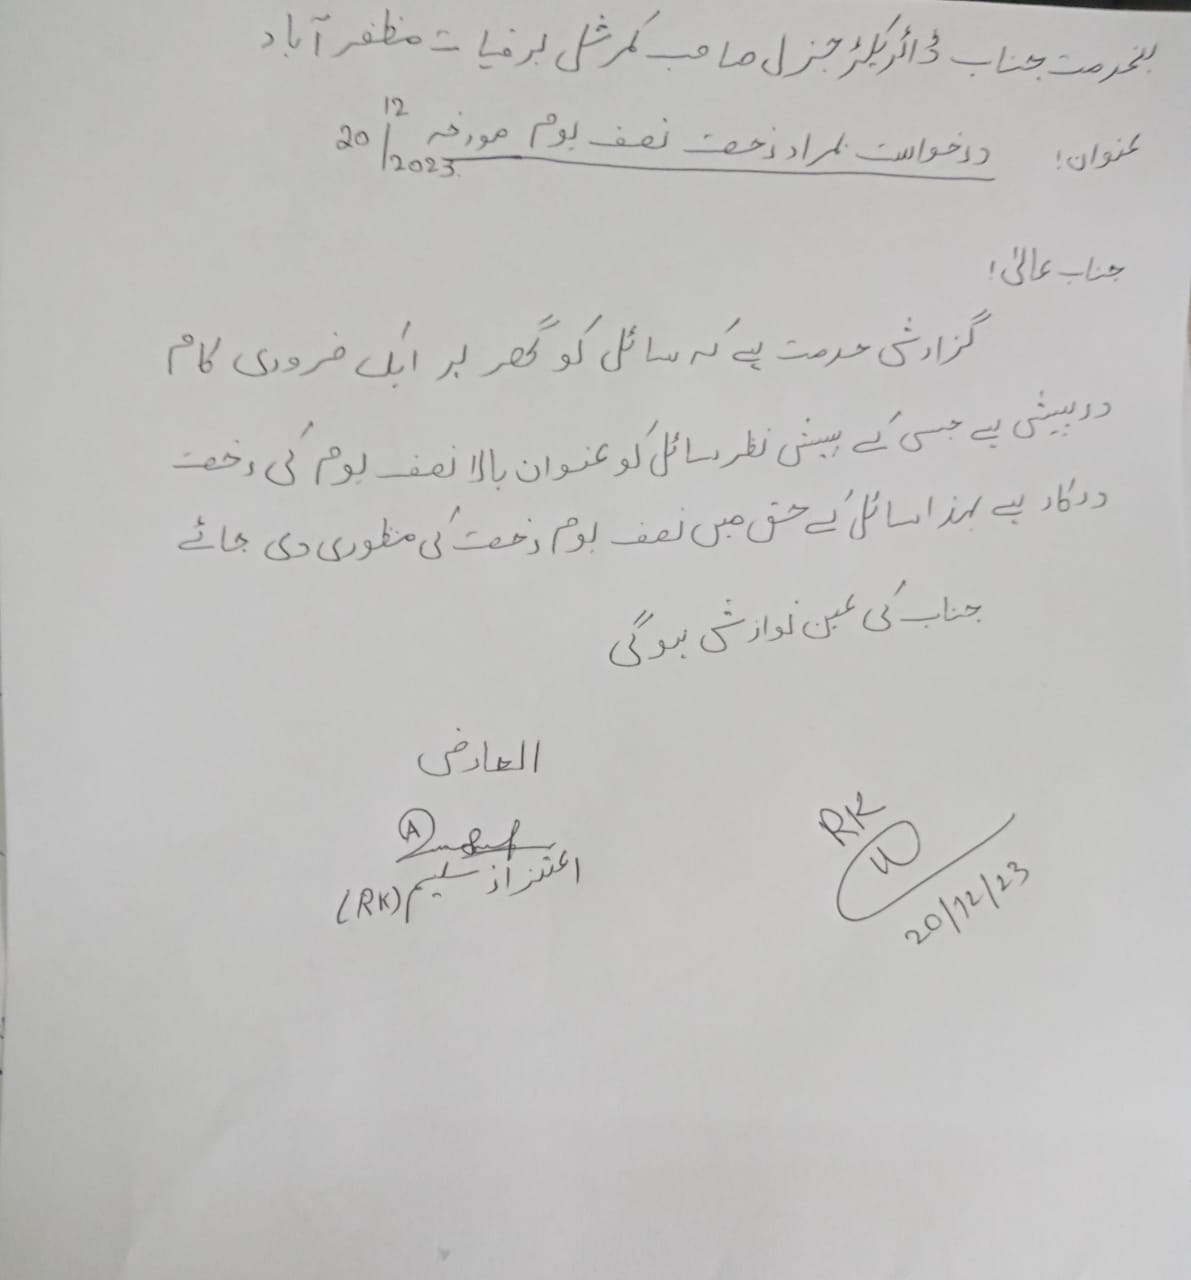 بخدمت جناب ڈائریکٹر جنرل صاحب کمرشل برقیات مظفر آباد
عنوان! درخواست بمراد رخصت نصف یوم مورخہ 20/12/2023
جناب عالیٰ!
گزارش خدمت ہے کہ سائل کو گھر پر ایک ضروری کام
درپیش ہے جس کے پیش نظر سائل کو عنوان بالا نصف یوم کی رخصت
درکار ہے لہذا سائل کے حق میں نصف یوم رخصت کی منظوری دی جائے
جناب کی عین نوازش ہوگی
العارض
اعتزاز سلیم (RK)
RK
20/12/23